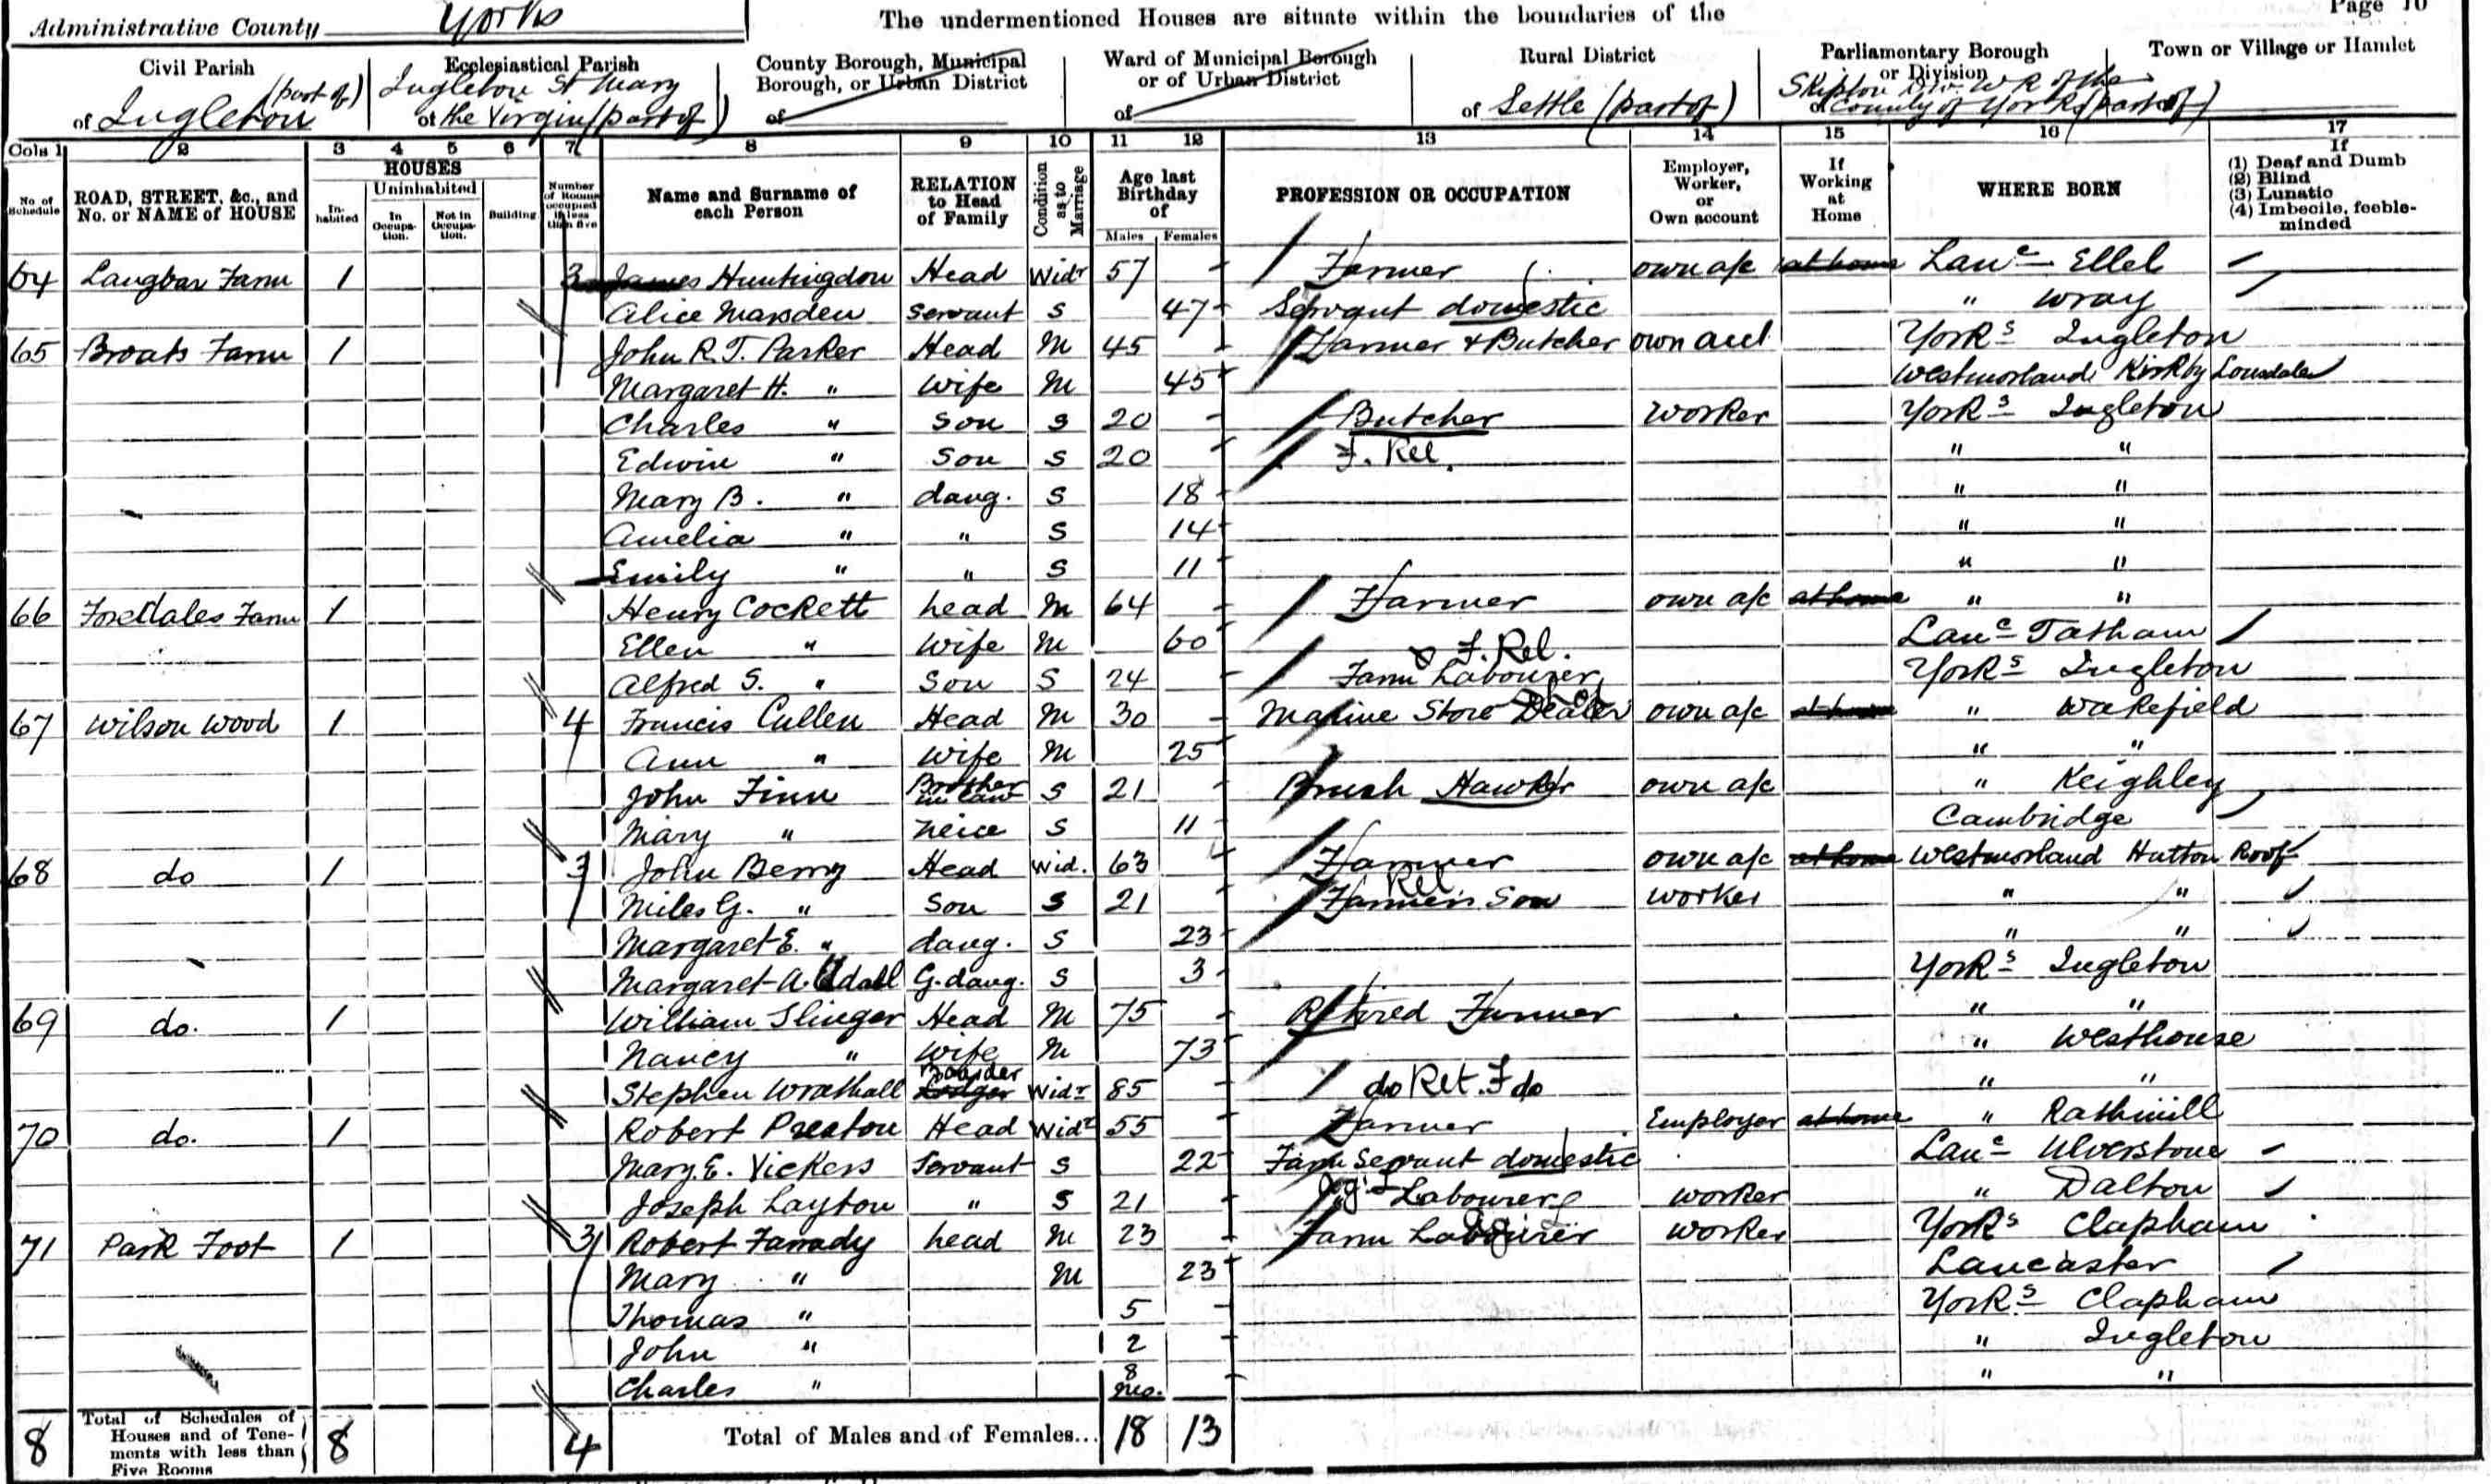 Administrative County Yorks The undermentioned Houses are situate within the boundaries of the Page 10
Civil Parish Ecclesiastical Parish County Borough, Municipal Borough, or Urban District Ward of Municipal Borough or of Urban District Rural District Parliamentary Borough or Division Town or Village or Hamlet
of Ingleton (part of) Ingleton St Mary of the Virgin (part of) of of of Settle (part of) Skipton Div. W R of the of County of Yorks (part of)
Cols 1 2 3 4 5 6 7 8 9 10 11 12 13 14 15 16 17
No. of Schedule ROAD, STREET, &c., and No. or NAME of HOUSE HOUSES In-habited Uninhabited In Occupa-tion. Not in Occupa-tion. Building Number of Rooms occupied if less than five Name and Surname of each Person RELATION to Head of Family Condition as to Marriage Age last Birthday of Males Females PROFESSION OR OCCUPATION Employer, Worker, or Own account If Working at Home WHERE BORN If (1) Deaf and Dumb (2) Blind (3) Lunatic (4) Imbecile, feeble-minded
64 Langbar Farm 1 3 James Huntingdon Head Widr 57 Farmer own a/c at home Lanc Ellel
Alice Marsden Servant S 47 Servant domestic " Wray
65 Broats Farm 1 John R. T. Parker Head M 45 Farmer & Butcher own acct Yorks Ingleton
Margaret H. " Wife M 45 Westmorland Kirkby Lonsdale
Charles " Son S 20 Butcher Worker Yorks Ingleton
Edwin " Son S 20 F. Rel. " "
Mary B. " daug. S 18 " "
Amelia " " S 14 " "
Emily " " S 11 " "
66 Farm 1 Henry Cockett head M 64 Farmer own a/c at home " "
Ellen " Wife M 60 Lanc Tatham
Alfred S. " Son S 24 Farm Labourer & F. Rel. Yorks Ingleton
67 Wilson Wood 1 4 Francis Cullen Head M 30 Marine Store Dealer own a/c at home " Wakefield
Ann " Wife M 25 " "
John Finn Brother in law S 21 Brush Hawker own a/c " Keighley
Mary " Neice S 11 Cambridge
68 do 1 3 John Berry Head Wid. 63 Farmer own a/c at home Westmorland Hutton Roof
Miles G. " Son S 21 Farmer's Son Rel. Worker " "
Margaret E. " daug. S 23 " "
Margaret A. Udall G. daug. S 3 Yorks Ingleton
69 do. 1 William Slinger Head M 75 Retired Farmer " "
Nancy " Wife M 73 " Westhouse
Stephen Wrathall Lodger Boarder Widr 85 do Ret. F do " "
70 do. 1 Robert Preston Head Widr 55 Farmer Employer at home " Rathmill
Mary E. Vickers Servant S 22 Farm Servant domestic Lanc Ulverstone
Joseph Layton " S 21 Labourer worker " Dalton
71 Park Foot 1 3 Robert Farrady head M 23 Farm Labourer worker Yorks Clapham
Mary " M 23 Lancaster
Thomas " 5 Yorks Clapham
John " 2 " Ingleton
Charles " 8 mo. " "
8 Total of Schedules of Houses and of Tene-ments with less than Five Rooms 8 4 Total of Males and of Females... 18 13